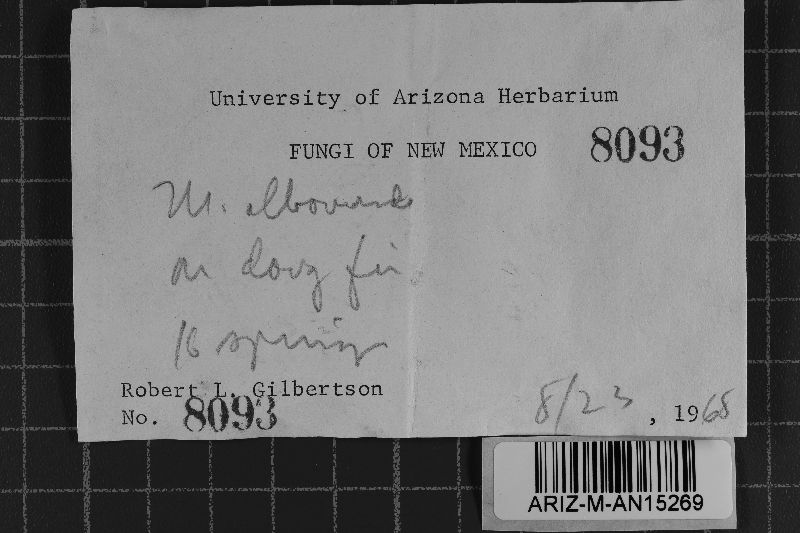 University of Arizona Herbarium
FUNGI OF NEW MEXICO 8093
M.
on doug fir
16 springs
Robert L. Gilbertson
No. 8093
8/23, 1968
ARIZ-M-AN15269